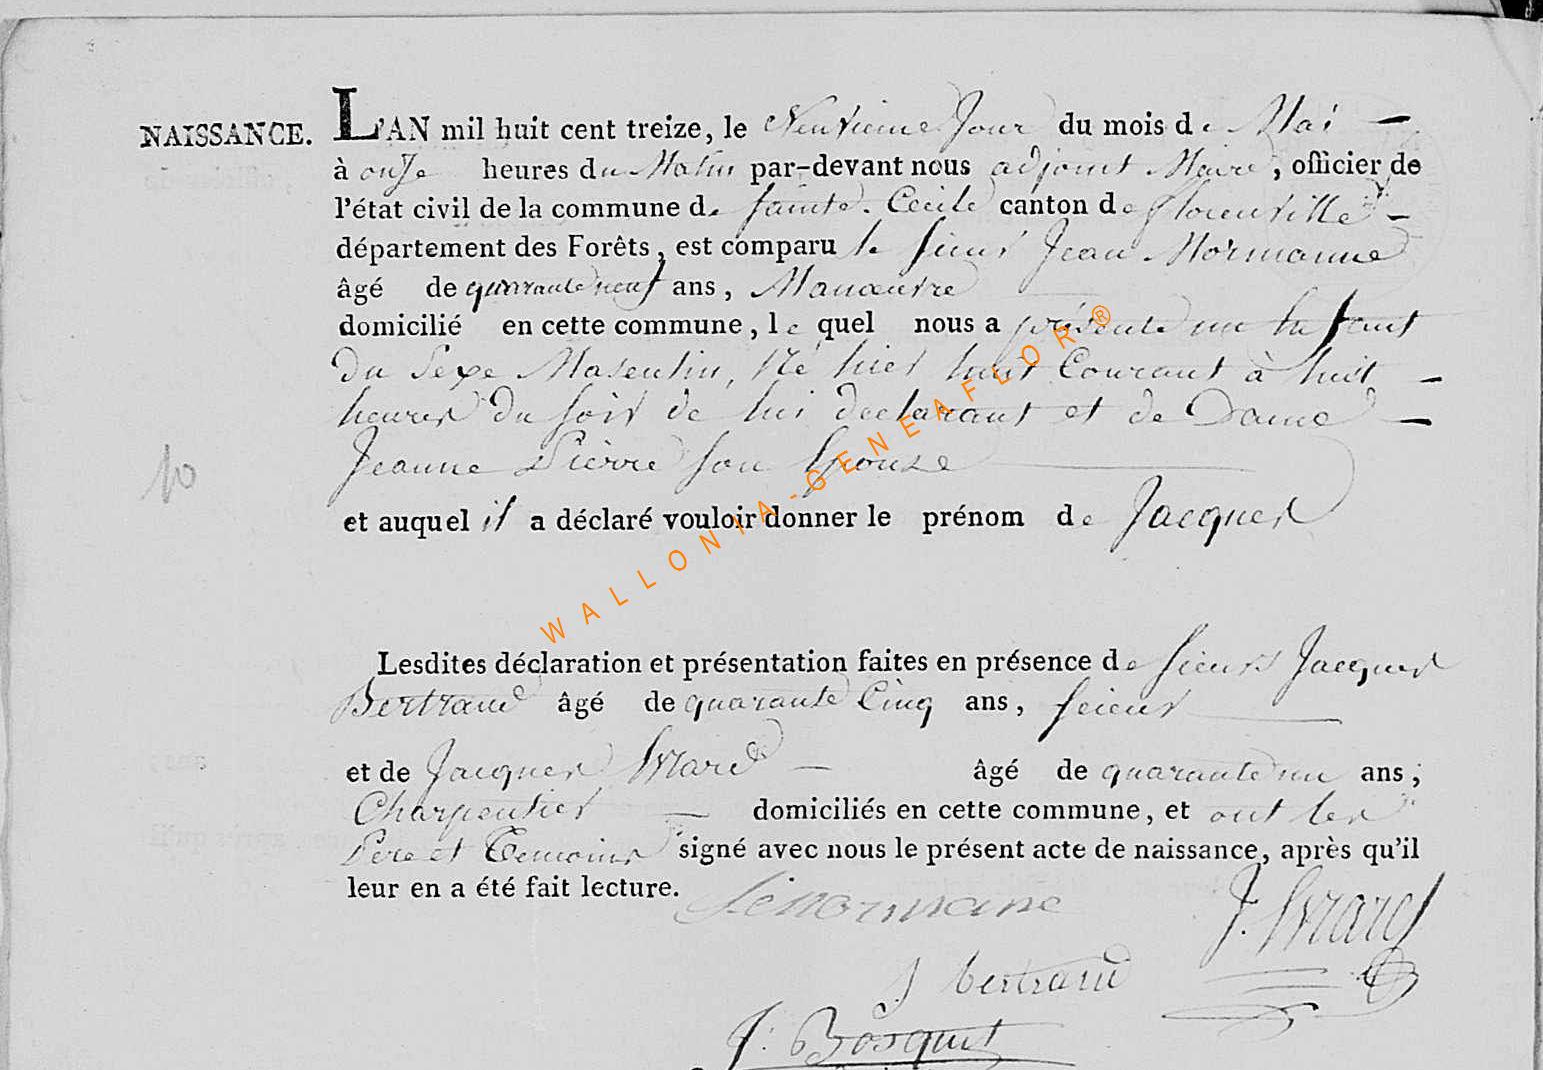 NAISSANCE. L'AN mil huit cent treize, le Neuvieme Jour du mois de Mai —
à onze heures du Matin par-devant nous adjoint Maire, officier de
l'état civil de la commune de Sainte. Cecile canton de Florenville —
département des Forêts, est comparu le sieur Jean Normanne
âgé de quarante neuf ans, Manœuvre
domicilié en cette commune, le quel nous a présenté un Enfant
du Sexe Masculin, Né hier huit Courant à huit —
heures du soir de lui declarant et de Dame —
Jeanne Pierre son Epouse
10
et auquel il a déclaré vouloir donner le prénom de Jacques
WALLONIA-GENEAFLOR®
Lesdites déclaration et présentation faites en présence de sieurs Jacques
Bertrand âgé de quarante Cinq ans, scieur
et de Jacques Evrard — âgé de quarante un ans;
Charpentier — domiciliés en cette commune, et ont les
Pere et Temoins signé avec nous le présent acte de naissance, après qu'il
leur en a été fait lecture. Lenormane
J. Evrard
J bertrand
J. Bosquet